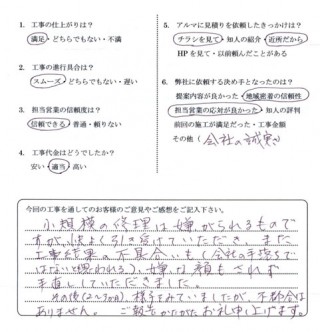 1. 工事の仕上がりは？
満足・どちらでもない・不満
2. 工事の進行具合は？
スムーズ・どちらでもない・遅い
3. 担当営業の信頼度は？
信頼できる・普通・頼りない
4. 工事代金はどうでしたか？
安い・適当・高い
5. アルマに見積りを依頼したきっかけは？
チラシを見て・知人の紹介・近所だから
HPを見て・以前頼んだことがある
6. 弊社に依頼する決め手となったのは？
提案内容が良かった・地域密着の信頼性
担当営業の応対が良かった・知人の評判
前回の施工が満足だった・工事金額
その他（会社の誠実さ
今回の工事を通してのお客様のご意見やご感想をご記入下さい。
小規模の修理は嫌がられるもので
すが、快よく引き受けていただき、また
工事結果の不具合いも（会社の手落ちで
はないと思われる）、嫌な顔もされず
手直ししていただきました。
その後（2～3か月）、様子をみていましたが、不都合は
ありません。ご報告かたがたお礼申し上げます。